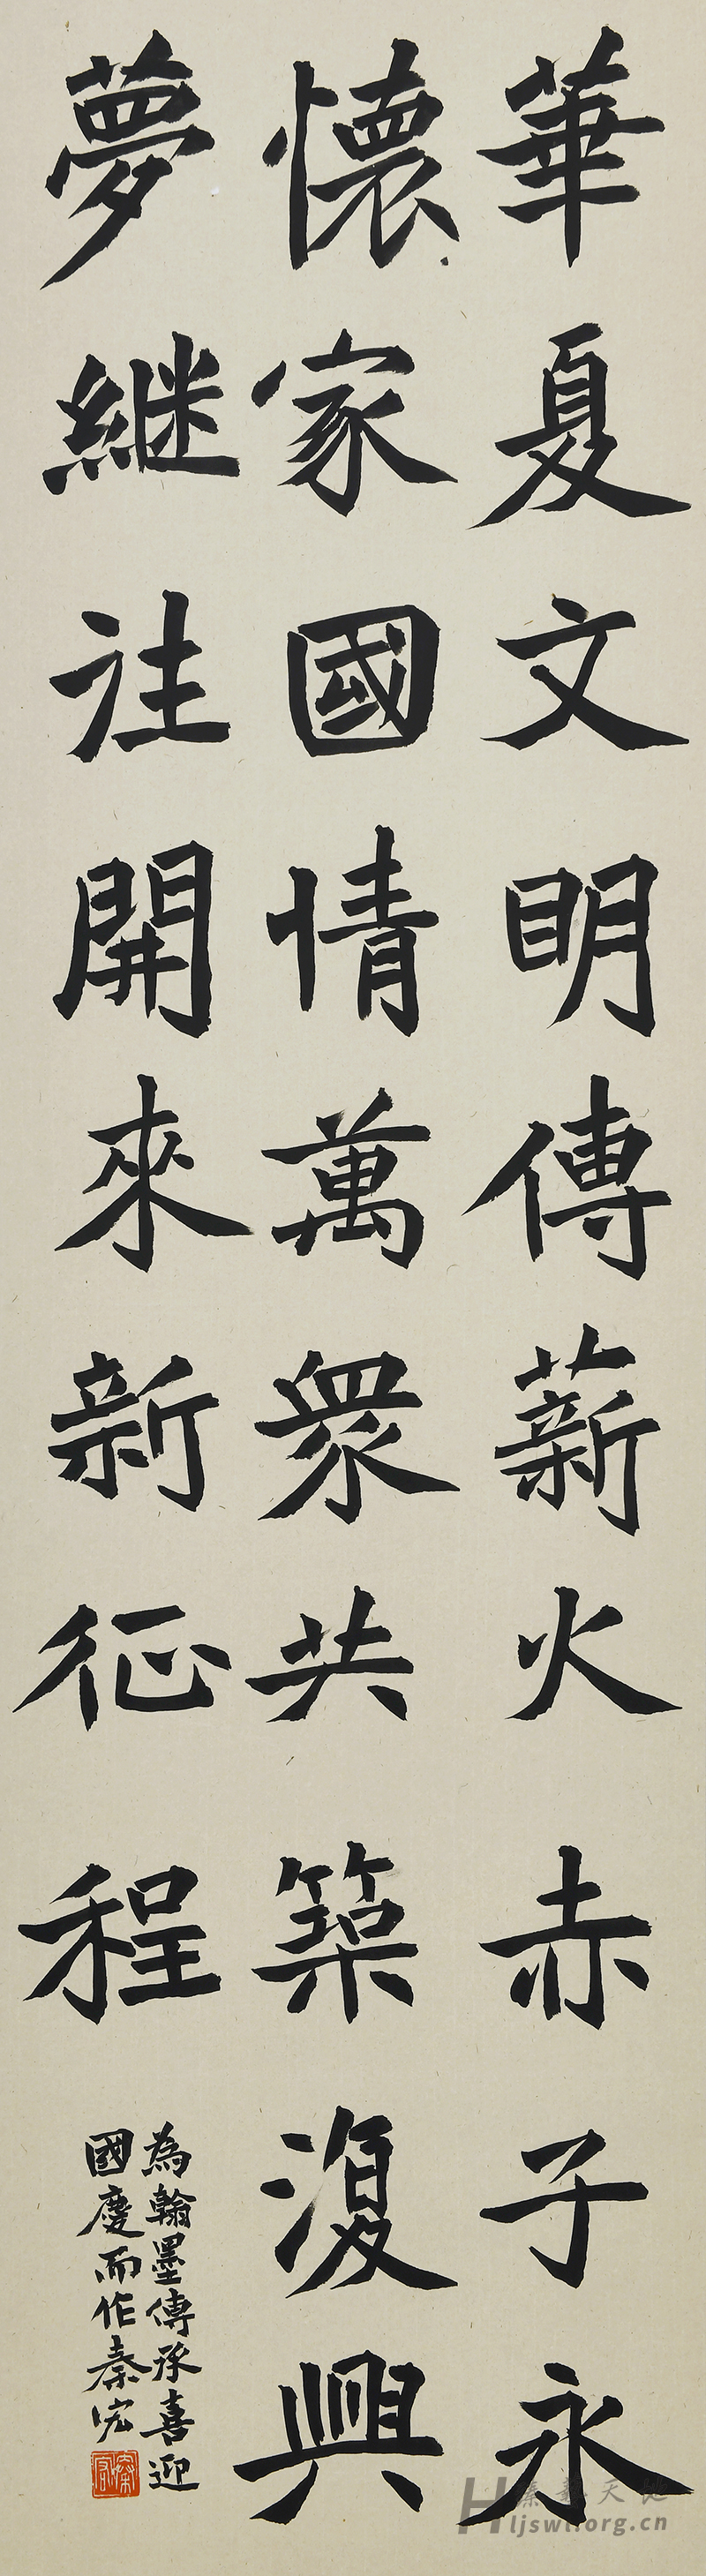 華夏文明傳薪火赤子永
懷家國情萬衆共築復興
夢継往開來新征程
為翰墨傳承喜迎
國慶而作秦宏
秦宏
ljswl.org.cn